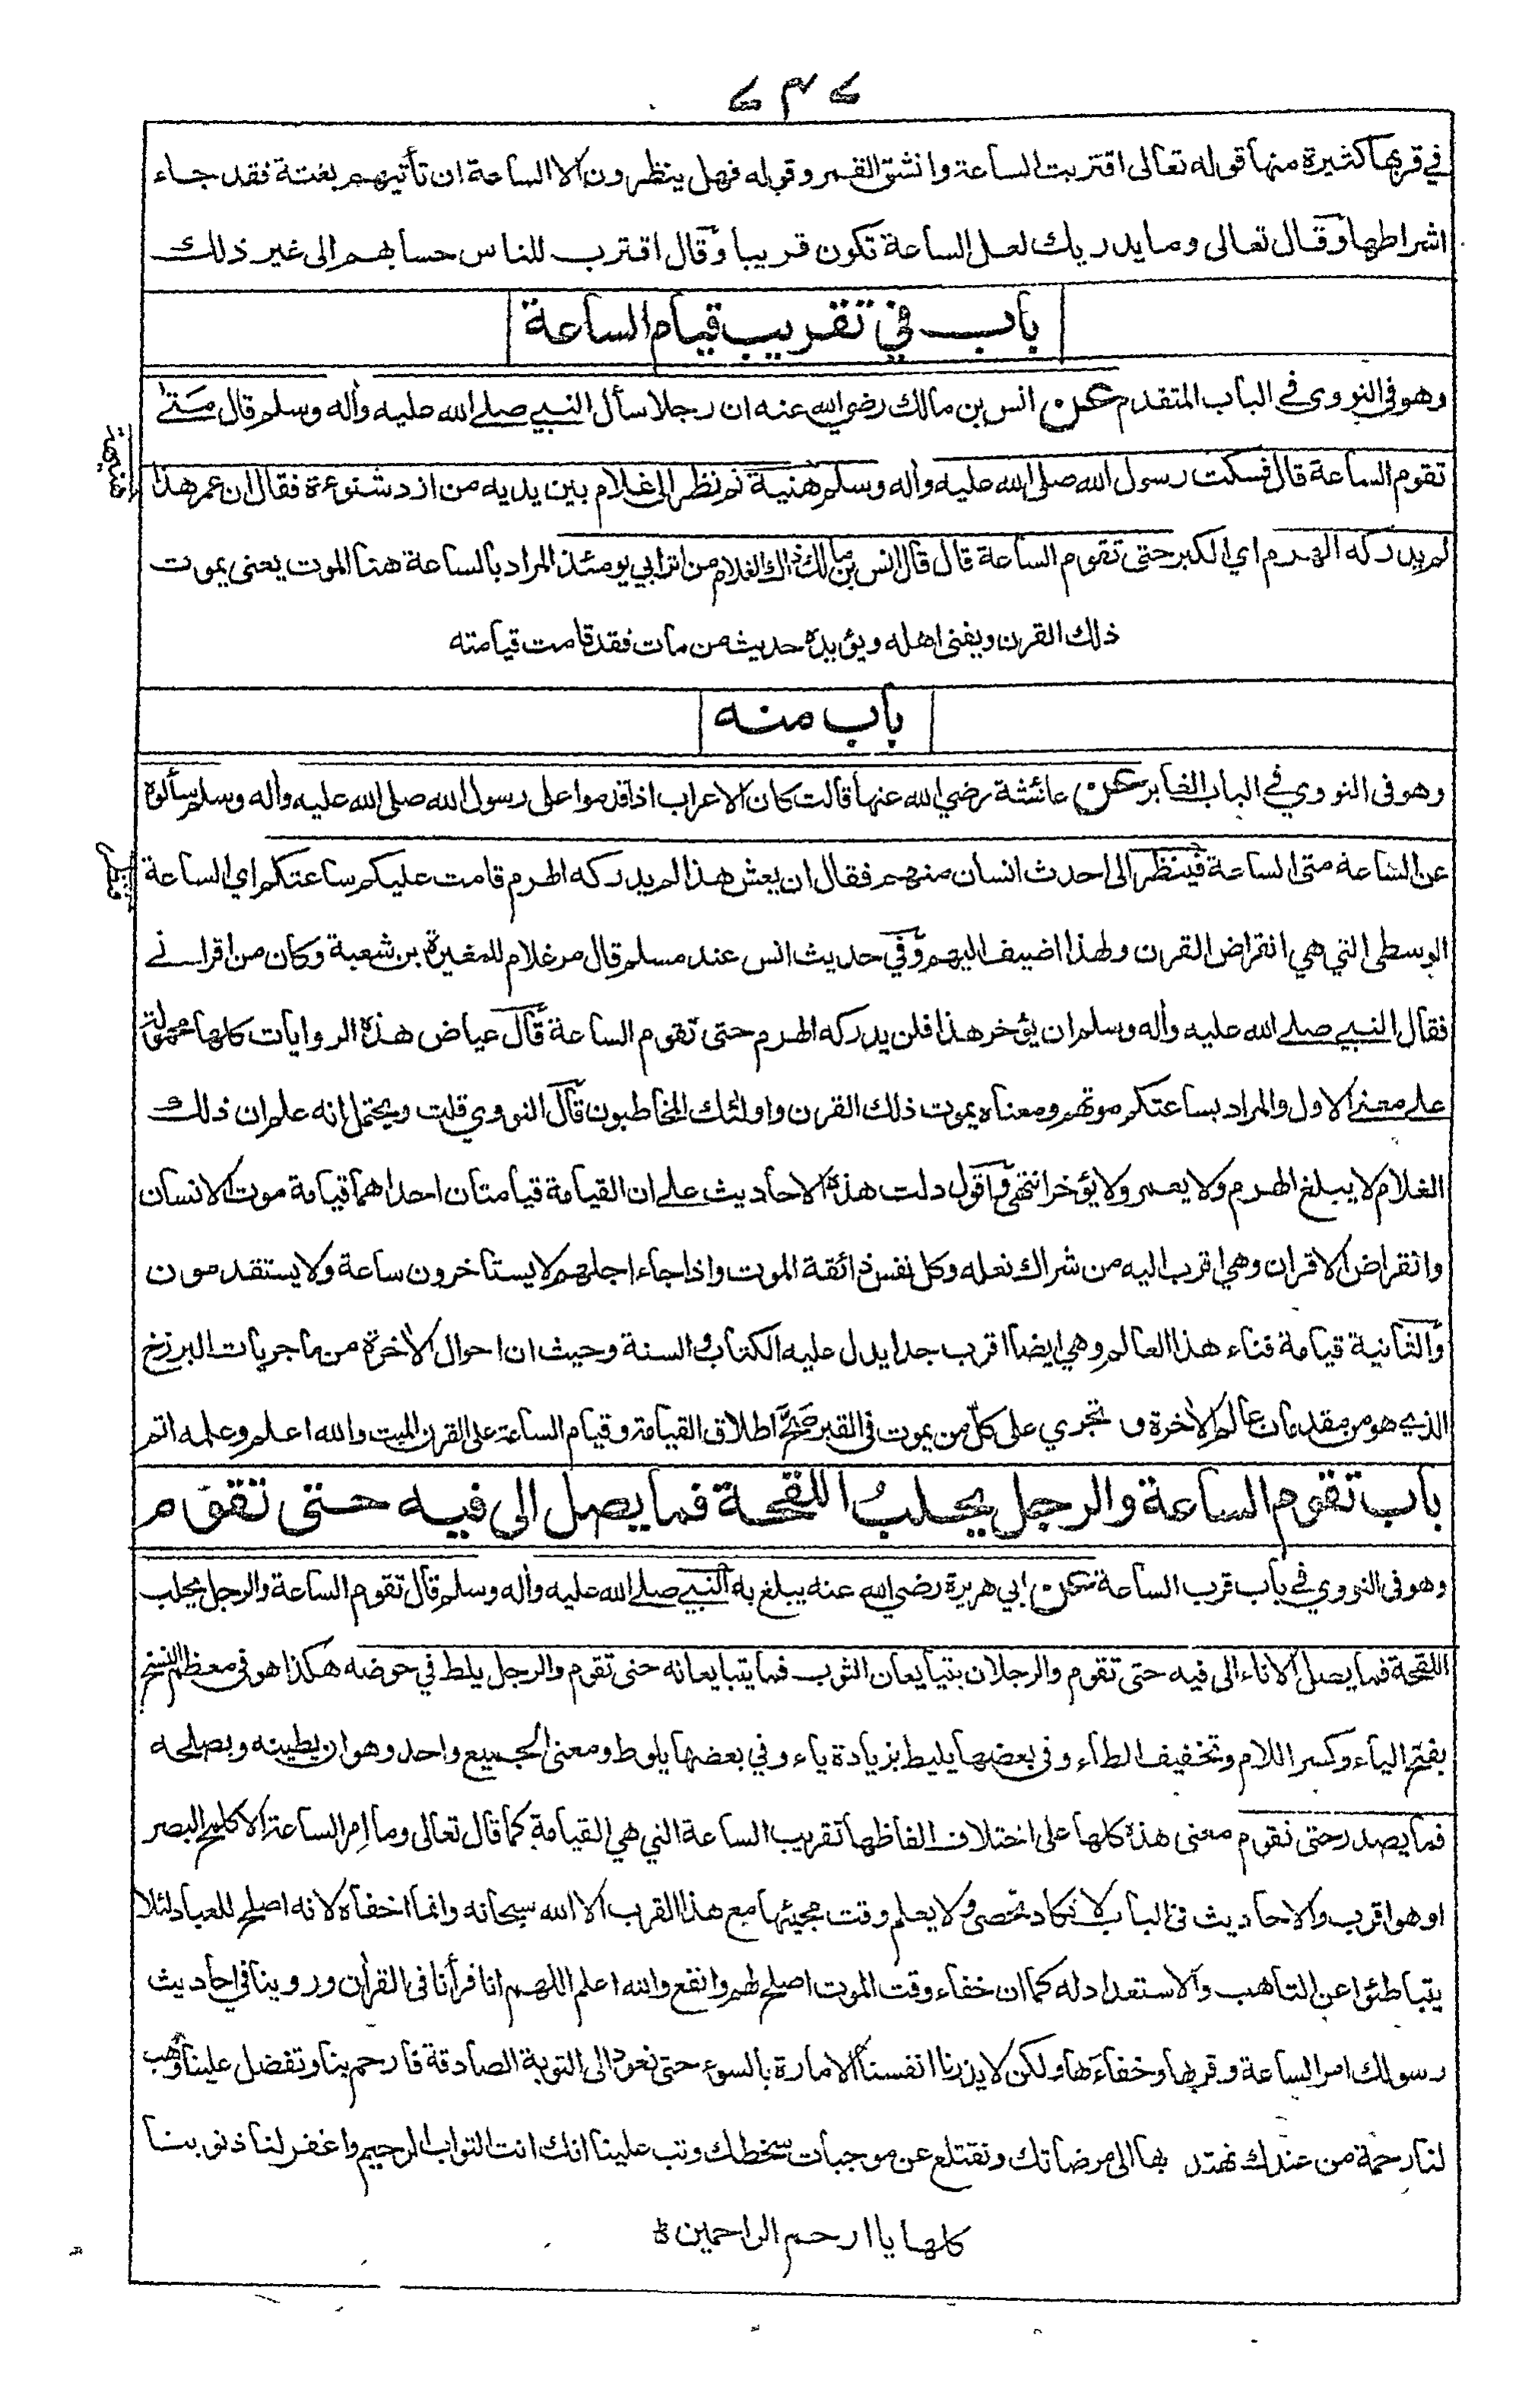 ٧٣٧
في قربها كثيرة منها قوله تعالى اقتربت الساعة وانشق القمر وقوله فهل ينظرون الا الساعة ان تأتيهم بغتة فقد جاء
اشراطها وقال تعالى وما يدريك لعل الساعة تكون قريبا وقال اقترب للناس حسابهم الى غير ذلك
باب في تقريب قيام الساعة
وهو في النووي في الباب المتقدم عن انس بن مالك رضي الله عنه ان رجلا سأل النبي صلى الله عليه وأله وسلم قال متى
تقوم الساعة قال فسكت رسول الله صلى الله عليه وأله وسلم هنية ثم نظر الى غلام بين يديه من ازد شنوءة فقال ان عمر هذا
لم يدركه الهرم اي الكبر حتى تقوم الساعة قال قال انس بن مالك ذاك الغلام من اترابي يومئذ المراد بالساعة هنا الموت يعنى يموت
ذلك القرن ويفنى اهله ويؤيده حديث من مات فقد قامت قيامته
باب منه
وهو في النووي في الباب الغابر عن عائشة رضي الله عنها قالت كان الاعراب اذا قدموا على رسول الله صلى الله عليه وأله وسلم سألوه
عن الساعة متى الساعة فينظر الى احدث انسان منهم فقال ان يعش هذا لم يدركه الهرم قامت عليكم ساعتكم اي الساعة
الوسطى التي هي انقراض القرن ولهذا اضيف اليهم وفي حديث انس عند مسلم قال مر غلام للمغيرة بن شعبة وكان من اقراني
فقال النبي صلى الله عليه وأله وسلم ان يؤخر هذا فلن يدركه الهرم حتى تقوم الساعة قال عياض هذه الروايات كلها محمولة
على معنى الاول والمراد بساعتكم موتهم ومعناه يموت ذلك القرن واولئك المخاطبون قال النووي قلت ويحتمل انه علم ان ذلك
الغلام لا يبلغ الهرم ولا يعمر ولا يؤخر انتهى واقول دلت هذه الاحاديث على ان القيامة قيامتان احداهما قيامة موت الانسان
وانقراض الاقران وهي اقرب اليه من شراك نعله وكل نفس ذائقة الموت واذا جاء اجلهم لا يستاخرون ساعة ولا يستقدمون
والثانية قيامة فناء هذا العالم وهي ايضا اقرب جدا يدل عليه الكتاب والسنة وحيث ان احوال الأخرة من ماجريات البرزخ
الذي هو من مقدمات عالم الأخرة و تجري على كل من يموت في القبر صح اطلاق القيامة وقيام الساعة على القرن الميت والله اعلم وعلمه اتم
باب تقوم الساعة والرجل يحلب اللقحة فما يصل الى فيه حتى تقوم
وهو في النووي في باب قرب الساعة عن ابي هريرة رضي الله عنه يبلغ به النبي صلى الله عليه وأله وسلم قال تقوم الساعة والرجل يحلب
اللقحة فما يصل الاناء الى فيه حتى تقوم والرجلان يتبايعان الثوب فما يتبايعانه حتى تقوم والرجل يلط في حوضه هكذا هو في معظم النسخ
بفتح الياء وكسر اللام وتخفيف الطاء وفي بعضها يليط بزيادة ياء وفي بعضها يلوط ومعنى الجميع واحد وهو ان يطينه ويصلحه
فما يصدر حتى تقوم معنى هذه كلها على اختلاف الفاظها تقريب الساعة التي هي القيامة كما قال تعالى وما امر الساعة الا كلمح البصر
او هو اقرب والاحاديث في الباب لا تكاد تحصى ولا يعلم وقت مجيئها مع هذا القرب الا الله سبحانه وانما اخفاه لانه اصلح للعباد لئلا
يتباطئوا عن التأهب والاستعداد له كما ان خفاء وقت الموت اصلح لهم وانفع والله اعلم اللهم انا قرأنا في القرأن وروينا في احاديث
رسولك امر الساعة وقربها وخفاءها ولكن لا يذرنا انفسنا الامارة بالسوء حتى نعود الى التوبة الصادقة فارحم بنا وتفضل علينا وهب
لنا رحمة من عندك نهتد بها الى مرضاتك ونقتلع عن موجبات سخطك وتب علينا انك انت التواب الرحيم واغفر لنا ذنوبنا
كلها يا ارحم الراحمين